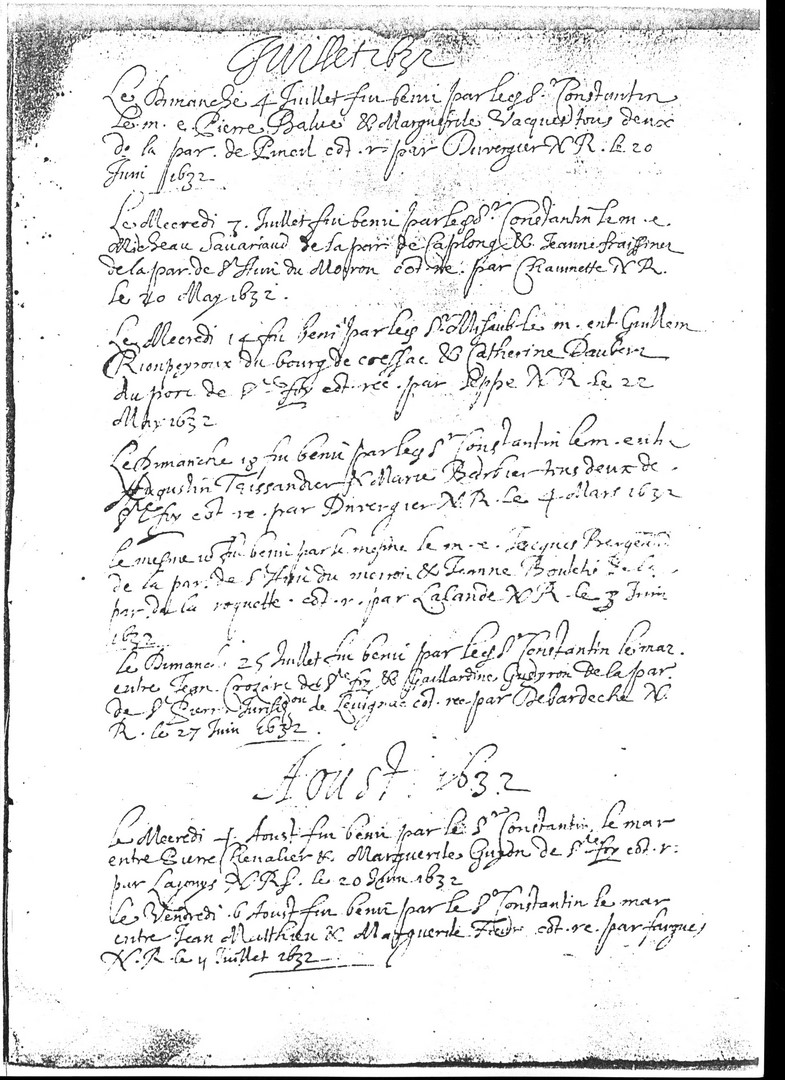 Juillet 1632
Le Dimanche 4 Juillet fut beni par le Sr. Constantin
le m. e. Pierre Balue & Marguerite Vacques tous deux
de la par. de Pineil cot. r. par Duvergier N. R. le 20
Juin 1632
Le Mecredi 7. Juillet fut beni par le Sr. Constantin le m. e
Micheau Savariaud de la par. de Caplong & Jeanne fraissinet
de la par. de St. Avi du Moiron cot. re. par Chaumette N. R.
le 20 May 1632.
Le Mecredi 14 fut beni par le Sr. le m. ent. Guillem
Rioupeyroux du bourg de coessac & Catherine Daubert
du port de Ste foy cot. rec. par Peppe N. R. le 22
May 1632
Le Dimanche 18 fut beni par le Sr Constantin le m. entr.
Augustin Teissandier & Marie Barbier tous deux de
Ste foy cot. re. par Duvergier N. R. le 4 Mars 1632
le mesme fut beni par le mesme le m. e. Jacques
de la par. de St Avi du moiron & Jeanne
par. de la roquette. cot. r. par Lalande N. R. le 3 Juin
1632
le Dimanche 25 Juillet fut beni par le Sr Constantin le mar.
entre Jean Crozarc de Ste foy & Gaillardine Gueyron de la par.
de St Pierre Jurison de Levignac cot. rec. par Debardeche N.
R. le 27 Juin 1632.
Aoust 1632
le Mecredi 4 Aoust fut beni par le Sr Constantin le mar
entre Pierre Chevalier & Marguerite Guyon de Ste foy cot. r.
par N. R. le 20 Juin 1632
le Vendredi 6 Aoust fut beni par le Sr Constantin le mar
entre Jean Matthieu & Marguerite cot. re. par fargues
N. R. le 11 Juillet 1632